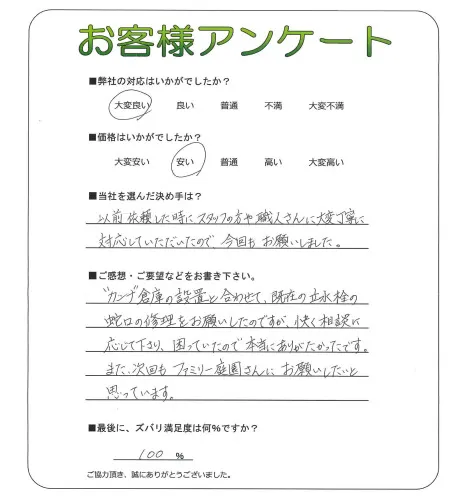 お客様アンケート
■弊社の対応はいかがでしたか？
大変良い 良い 普通 不満 大変不満
■価格はいかがでしたか？
大変安い 安い 普通 高い 大変高い
■当社を選んだ決め手は？
以前依頼した時にスタッフの方や職人さんに大変丁寧に
対応していただいたので、今回もお願いしました。
■ご感想・ご要望などをお書き下さい。
倉庫の設置と合わせて、既存の立水栓の
蛇口の修理をお願いしたのですが、快く相談に
応じて下さり、困っていたので本当にありがたかったです。
また、次回もファミリー庭園さんにお願いしたいと
思っています。
■最後に、ズバリ満足度は何％ですか？
100 %
ご協力頂き、誠にありがとうございました。